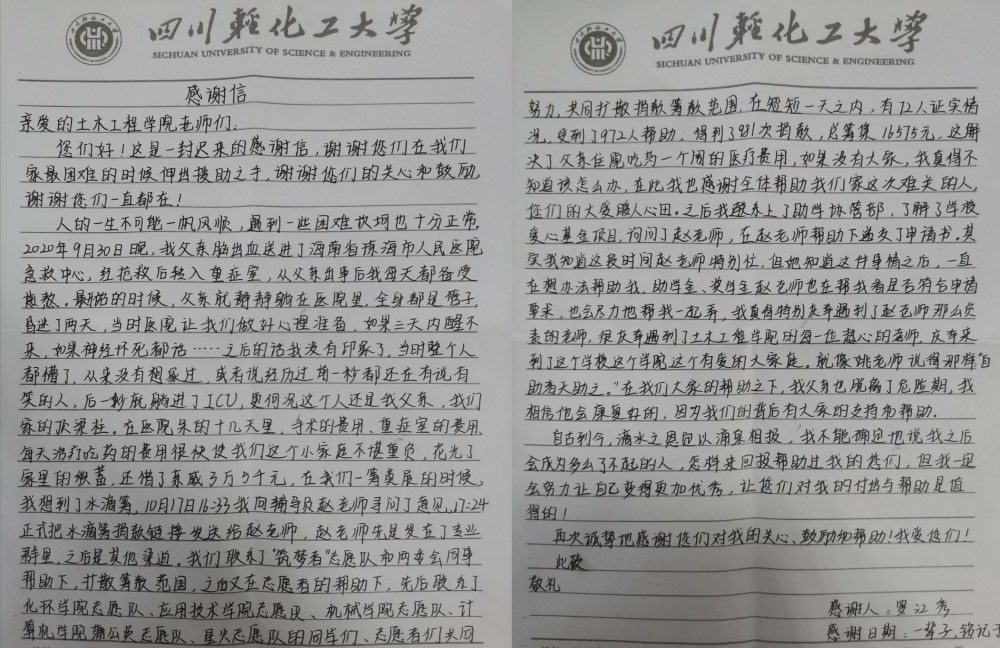 四川轻化工大学
SICHUAN UNIVERSITY OF SCIENCE & ENGINEERING
感谢信
亲爱的土木工程学院老师们:
您们好!这是一封迟来的感谢信,谢谢您们在我们
家最困难的时候伸出援助之手,谢谢您们的关心和鼓励,
谢谢您们一直都在!
人的一生不可能一帆风顺,遇到一些困难坎坷也十分正常.
2020年9月30日晚,我父亲脑出血送进了海南省琼海市人民医院
急救中心,经抢救后转入重症室,从父亲出事后我每天都备受
煎熬。最开始的时候,父亲就静静躺在医院里,全身都是管子,
昏迷了两天,当时医院让我们做好心理准备,如果三天内醒不
来,如果神经坏死都话……之后的话我没有印象了,当时整个人
都懵了,从来没有想象过,或者说经历过前一秒都还在有说有
笑的人,后一秒就躺进了ICU,更何况这个人还是我父亲,我们
家的顶梁柱。在医院呆的十几天里,手术的费用、重症室的费用、
每天治疗吃药的费用很快使我们这个小家庭不堪重负,花光了
家里的积蓄,还借了亲戚3万5千元,在我们一筹莫展的时候,
我想到了水滴筹,10月17日16:33我向辅导员赵老师寻问了意见,17:24
正式把水滴筹捐款链接发送给赵老师,赵老师先是发在了专业
群里,之后是其他渠道。我们联系了"筑梦者"志愿队和团委会同等
帮助下,扩散筹款范围,之后又在志愿者的帮助下,先后联系了
化环学院志愿队、应用技术学院志愿队、机械学院志愿队、计
算机学院蒲公英志愿队、星火志愿队的同学们、志愿者们共同
四川轻化工大学
SICHUAN UNIVERSITY OF SCIENCE & ENGINEERING
努力,共同扩散捐款筹款范围,在短短一天之内,有72人证实情
况,受到了972人帮助,得到了981次捐款,总筹集16575元,这解
决了父亲住院吃药一个周的医疗费用,如果没有大家,我真得不
知道该怎么办,在此我也感谢全体帮助我们家这次难关的人,
您们的大爱暖人心田。之后我联系上了助学协管部,了解了学校
爱心基金项目,询问了赵老师,在赵老师帮助下递交了申请书。其
实我知道这段时间赵老师特别忙,但她知道这件事情之后,一直
在想办法帮助我,助学金、奖学金赵老师也在帮我看是否符合申请
要求,也会尽力地帮我一起弄,我真得特别庆幸遇到了赵老师那么负
责的老师,很庆幸遇到了土木工程学院的每一位热心的老师,庆幸来
到了这个学校这个学院这个有爱的大家庭。就像姚老师说得那样"自
助者天助之。"在我们大家的帮助之下,我父亲也脱离了危险期,我
相信他会康复好的,因为我们的背后有大家的支持和帮助.
自古到今,滴水之恩已以涌泉相报,我不能确定地说我之后
会成为多么了不起的人,怎样来回报帮助过我的您们,但我一定
会努力让自己变得更加优秀,让您们对我的付出与帮助是值
得的!
再次诚挚地感谢您们对我的关心、鼓励和帮助!我爱您们!
此致
敬礼
感谢人:罗江秀
感谢日期:一辈子,铭记于